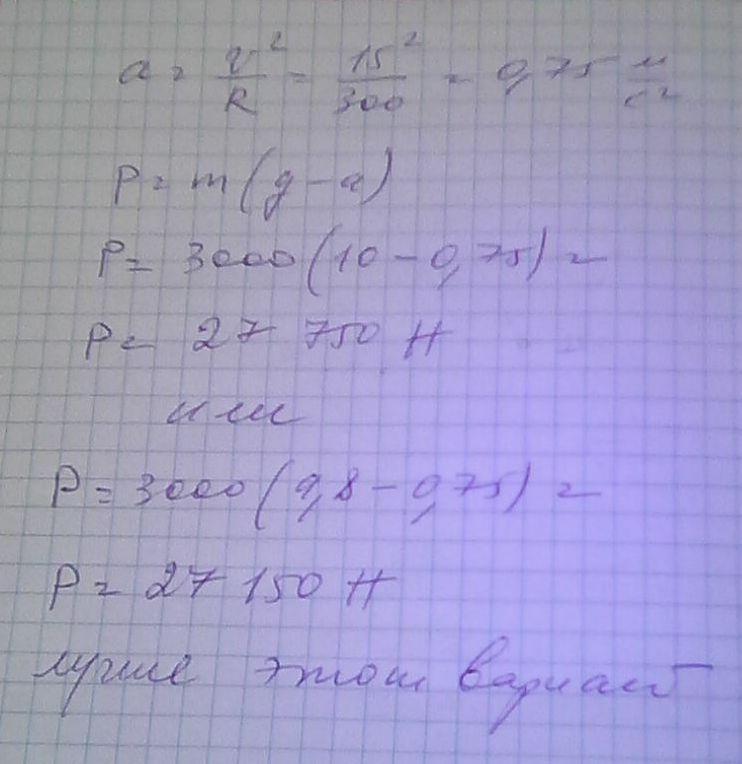 a = v²/R = 15²/300 = 0,75 м/с²
P = m(g - a)
P = 3000(10 - 0,75) =
P = 27 750 Н
или
P = 3000(9,8 - 0,75) =
P = 27 150 Н
лучше этот вариант